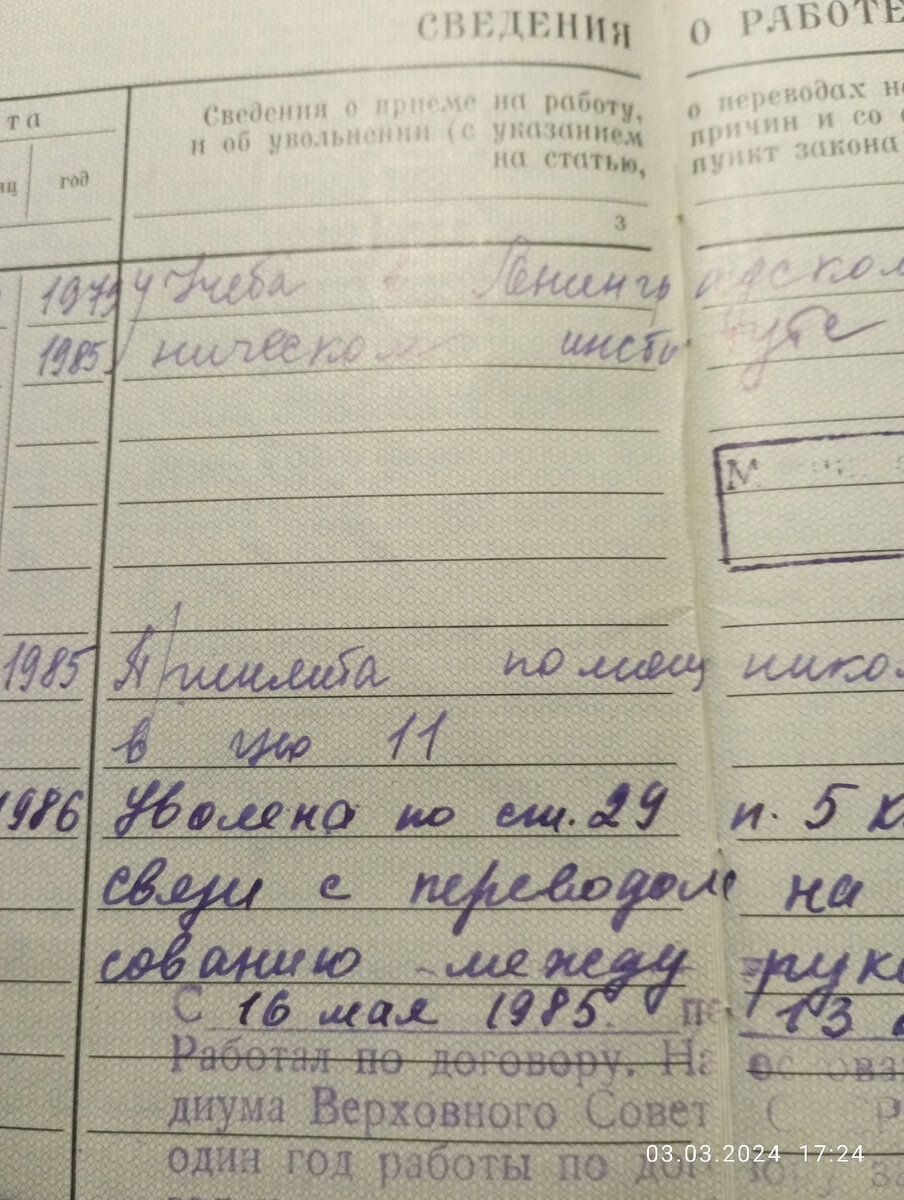 СВЕДЕНИЯ О РАБОТЕ
та
Сведения о приеме на работу, о переводах
и об увольнении (с указанием причин и со
на статью, пункт закона
год
3
1979 Учеба в Ленинградском
1985 ническом институте
М
1985 Принята помощником
в цех 11
1986 Уволена по ст. 29 п. 5
связи с переводом на
сованию между
С 16 мая 1985 13
Работал по договору. На основа
диума Верховного Совет Р
один год работы по до
03.03.2024 17:24